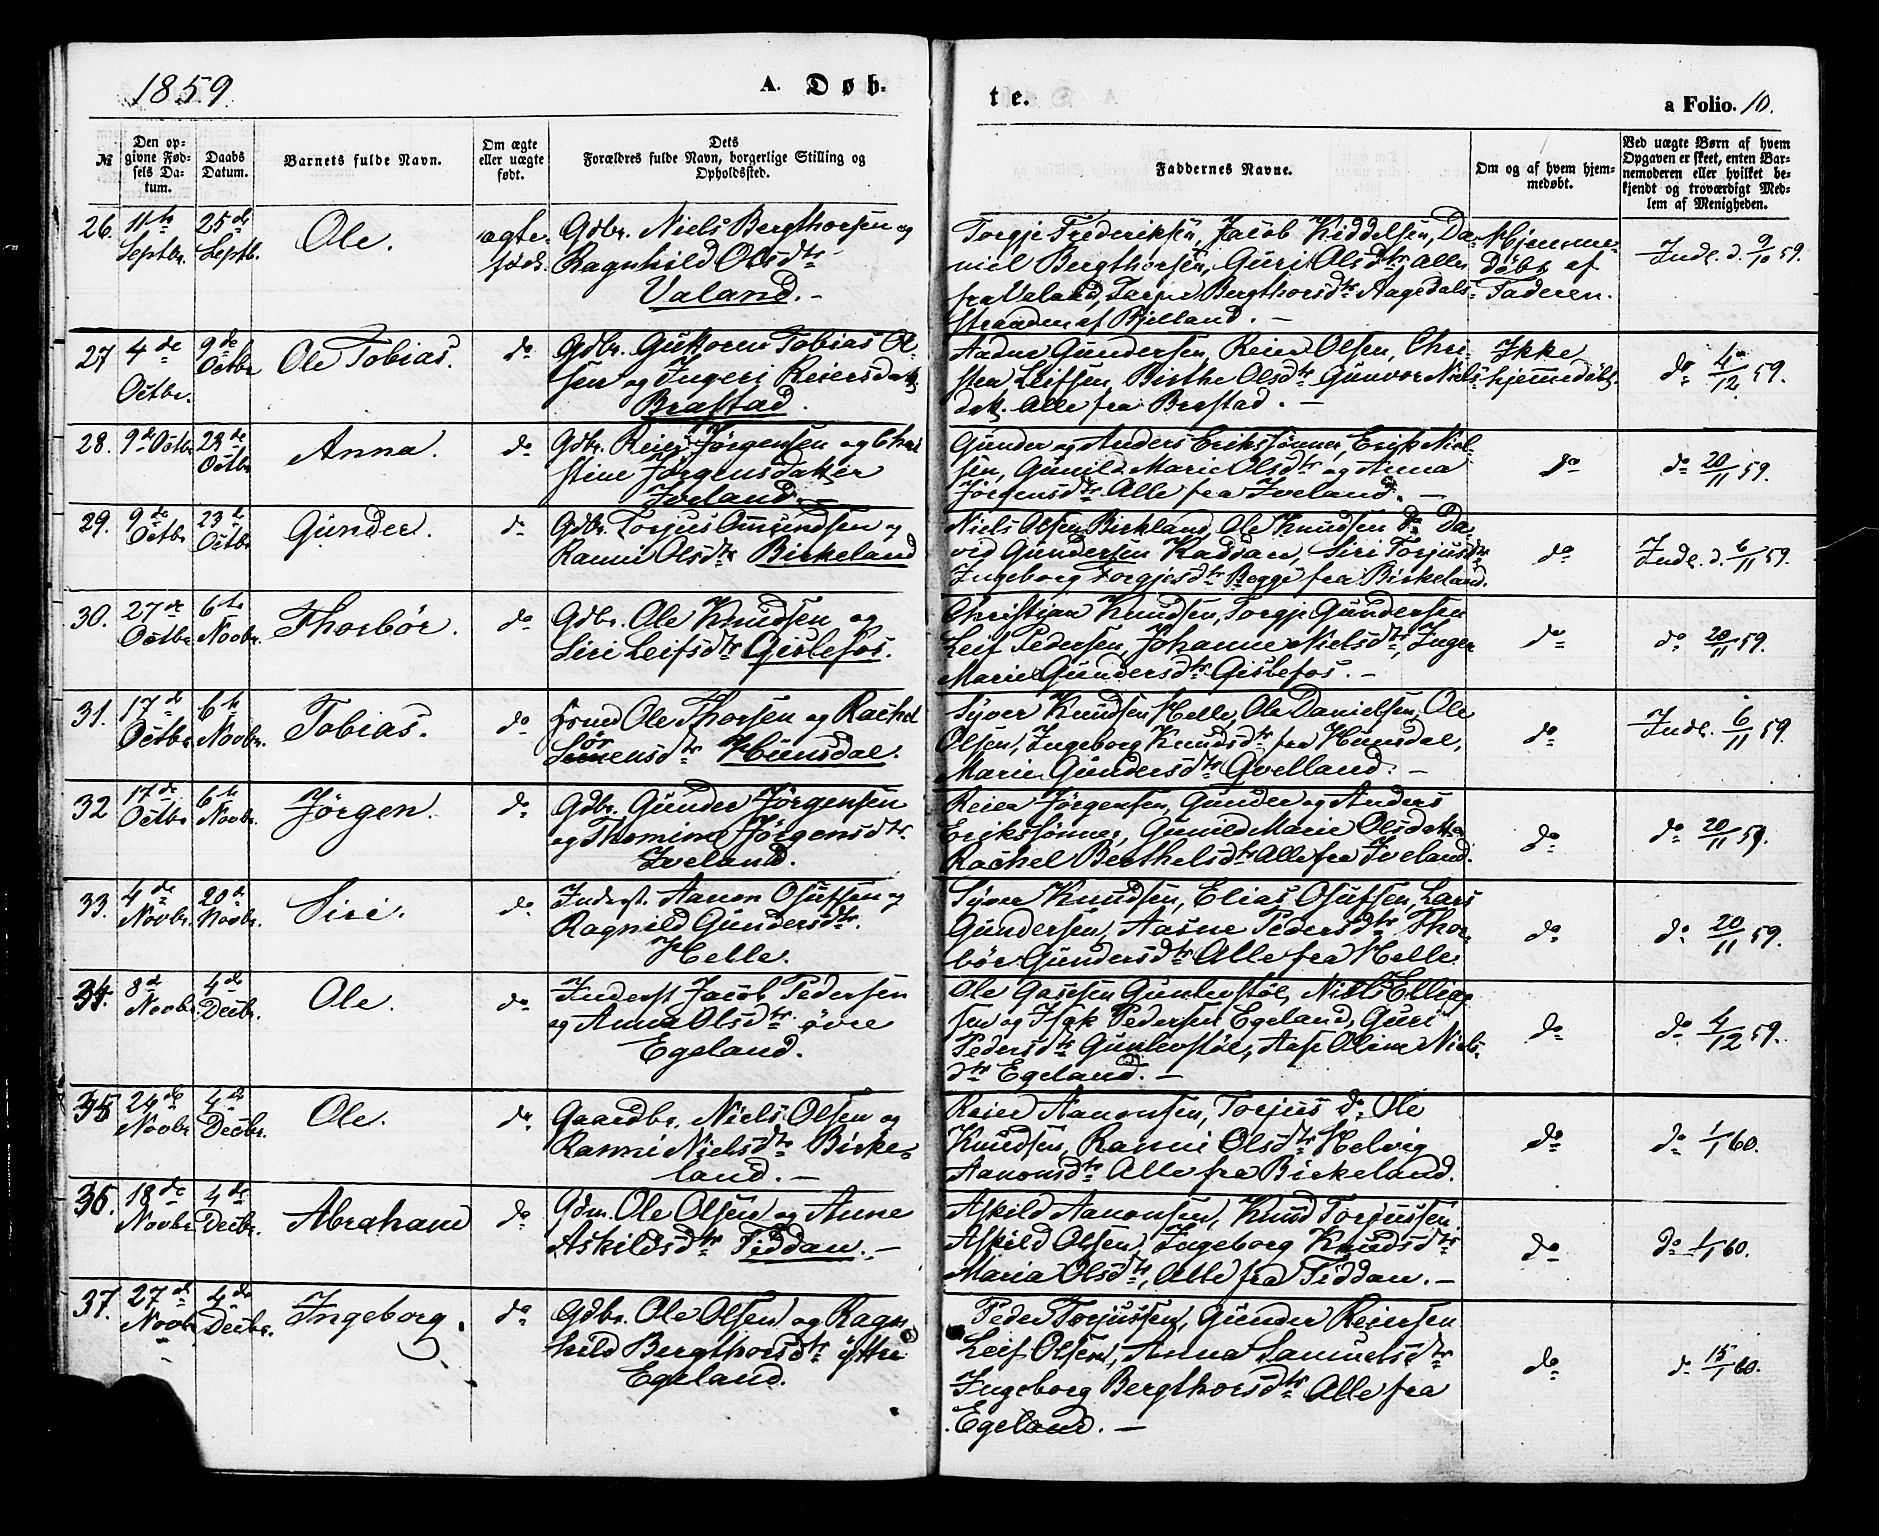 1859.
A. Døb-
te.
a Folio. 10.
№
Den op-
givne Fød-
sels Da-
tum.
Daabs
Datum.
Barnets fulde Navn.
Om ægte
eller uægte
født.
Dets
Forældres fulde Navn, borgerlige Stilling og
Opholdssted.
Faddernes Navne.
Om og af hvem hjem-
medøbt.
Ved uægte Børn af hvem
Opgaven er skeet, enten Bar-
nemoderen eller hvilket be-
kjendt og troværdigt Med-
lem af Menigheden.
26. 11te
Septbr.
25de
Septb.
Ole.
ægte
født.
Gdbr. Niels Bergthorsen og
Ragnhild Olsdtr
Valand. -
Torgje Frederiksen, Jacob Kiddelsen, Da-
niel Bergthorsen, Guri Olsdtr, Alle
fra Valand, Bergthorsdtr Aagedals-
stranden af Bjelland. -
Hjemme-
døbt af
Faderen.
Indl. d. 9/10 59.
27 4de
Octbr.
9de
Octbr
Ole Tobias.
do
Gdbr. Guttorm Tobias Ol-
sen og Ingeri Reiersdatt.
Brastad.
Aadne Gundersen, Reier Olsen, Chri-
sten Leifsen, Birthe Olsdtr Gunvor Niels-
datt. Alle fra Brastad. -
Ikke
hjemmedøbt.
do 4/12 59.
28. 9de Octbr
23de
Octbr
Anna.
do
Gdbr. Reier Jørgensen og Chri
stine Jørgensdatter
Iveland. -
Gunder og Anders Erikssønner, Erik Niel-
sen, Gunild Marie Olsdtr og Anna
Jørgensdtr Alle fra Iveland. -
do
do 20/11 59.
29. 9de
Octbr
23de
Octbr
Gunder.
do
Gdbr. Torjus Omundsen og
Ranni Olsdtr Birkeland
Niels Olsen Birkland, Ole Knudsen do Da-
vid Gundersen Kaddan, Siri Torjusdtr
Ingeborg Torgjesdtr Begge fra Birkeland.
do
Indl. d. 6/11 59.
30. 27de
Octbr
6te
Novbr.
Thorbör.
do
Gdbr. Ole Knudsen og
Siri Leifsdtr Gislefos.
Christian Knudsen, Torgje Gundersen
Leif Pedersen, Johanne Nielsdtr, Inger
Marie Gundersdtr Gislefos. -
do
do 20/11 59.
31. 17de
Octbr
6te
Novbr.
Tobias.
do
Ole Thorsen og Rachel
Sörensdtr Hunsdal.
Syver Knudsen Helle, Ole Danielsen, Ole
Olsen, Ingeborg Knudsdtr fra Hunsdal,
Marie Gundersdtr Qvelland. -
do
Indl. 6/11 59.
32 17de
Octbr
6te
Novbr.
Jörgen.
do
Gdbr. Gunder Jørgensen
og Thomine Jørgensdtr.
Iveland.
Reier Jørgensen, Gunder og Anders
Erikssønner, Gunild Marie Olsdatt og
Rachel Berthelsdtr Alle fra Iveland.
do
do 20/11 59.
33. 4de
Novbr.
20de
Novbr.
Siri.
do
Inderst. Aanon Osufsen og
Ragnild Gundersdtr.
Helle.
Syver Knudsen, Elias Osufsen, Lars
Gundersen, Aasne Pedersdtr Thor-
bör Gundersdtr Alle fra Helle.
do
do 20/11 59.
34. 8de
Novbr.
4de
Decbr.
Ole.
do
Inderst Jacob Pedersen
og Anna Olsdtr. øvre
Egeland.
Ole Gunlevstøl, Niels Ellings
sen og Isak Pedersen Egeland, Guri
Pedersdtr Gunlevstøl, Aase Oline Niels-
dtr Egeland. -
do
do 4/12 59.
35 24de
Novbr
4de
Decbr.
Ole.
do
Gaardbr. Niels Olsen og
Ranni Nielsdtr Birke-
land. -
Reier Aanonsen, Torjus do Ole
Knudsen, Ranni Olsdtr Helvig
Aanonsdtr Alle fra Birkeland.
do
do 1/1 60.
36. 18de
Novbr
4de
Decbr.
Abraham
do
Gdm. Ole Olsen og Anne
Askildsdtr Fiddan. -
Askild Aanonsen, Knud Torjussen.
Askild Olsen, Ingeborg Knudsdtr
Maria Olsdtr, Alle fra Fiddan. -
do
do 1/1 60.
37. 27de
Novbr
4de
Decbr.
Ingeborg.
do
Gdbr. Ole Olsen og Ragn
hild Bergthorsdtr yttre
Egeland.
Peder Torjussen, Gunder Reiersen
Leif Olsen, Anna Samuelsdtr
Ingeborg Bergthorsdtr Alle fra
Egeland. -
do
do 15/1 60.